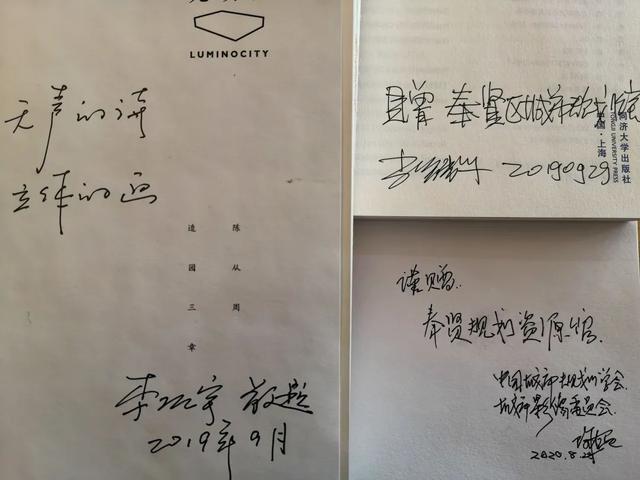 LUMINOCITY
无声的诗
立体的画
陈从周
造园三章
李 宇 敬题
2019年9月
同济大学出版社
TONGJI UNIVERSITY PRESS
中国·上海
惠赠 奉贤区城市规划馆
20190929
谨赠.
奉贤规划资源馆.
中国城市规划学会
城市影像委员会.
2020.8.24